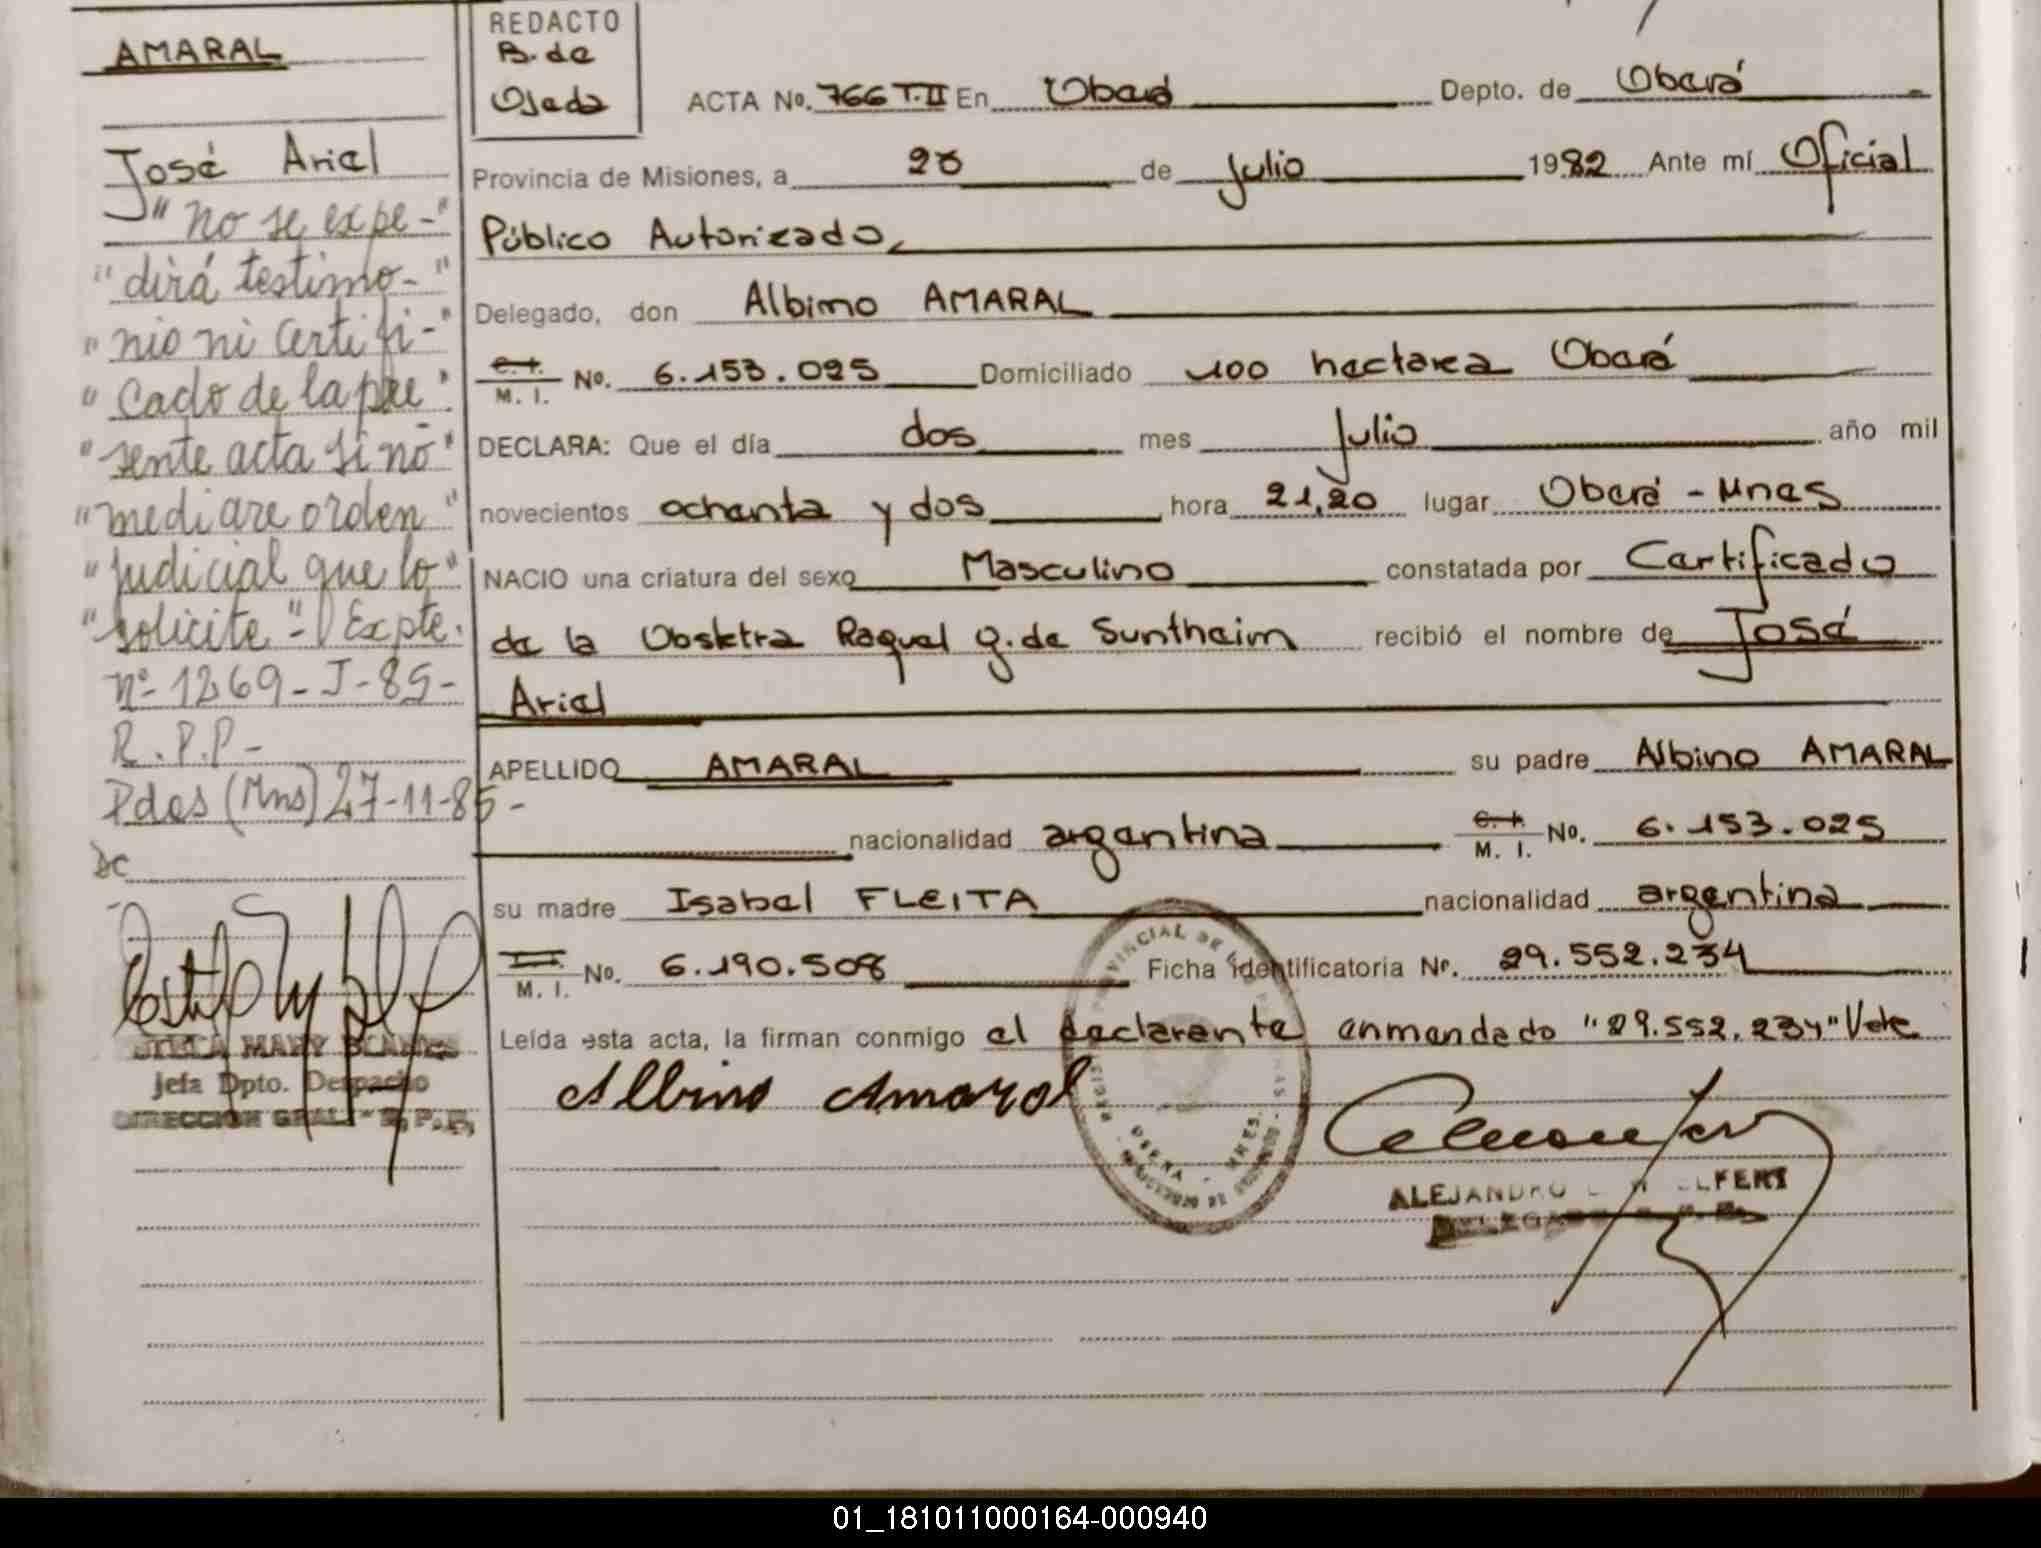 AMARAL
José Ariel
"no se expe-"
"dirá testimo-"
"nio ni certifi-"
"cado de la pre"
"sente acta si no"
"mediare orden"
"judicial que lo"
"solicite"- Expte.
nº-1269-J-85-
R.P.P-
Pdas (Mns) 27-11-85-
Dc
STELA MARY BLANES
Jefa Dpto. Despacho
DIRECCION GRAL. R.P.P.
REDACTO
B. de
Ojeda
ACTA No. 766 T.II En Oberá Depto. de Oberá
Provincia de Misiones, a 20 de julio 1982 Ante mí Oficial
Público Autorizado,
Delegado, don Albino AMARAL
M. I. No. 6.153.025 Domiciliado 100 hectarea Oberá
DECLARA: Que el día dos mes julio año mil
novecientos ochenta y dos hora 21,20 lugar Oberá - Mnes
NACIO una criatura del sexo Masculino constatada por Certificado
de la Obstetra Raquel G. de Suntheim recibió el nombre de José
Ariel
APELLIDO AMARAL su padre Albino AMARAL
nacionalidad argentina M. I. No. 6.153.025
su madre Isabel FLEITA nacionalidad argentina
M. I. No. 6.190.508 Ficha identificatoria Nº. 29.552.234
Leída esta acta, la firman conmigo el declarante enmendado "29.552.234" Vale
Albino Amaral
ALEJANDRO
DELEGADO
PROVINCIAL DE LAS PERSONAS
OBERA - MNES.
01_181011000164-000940